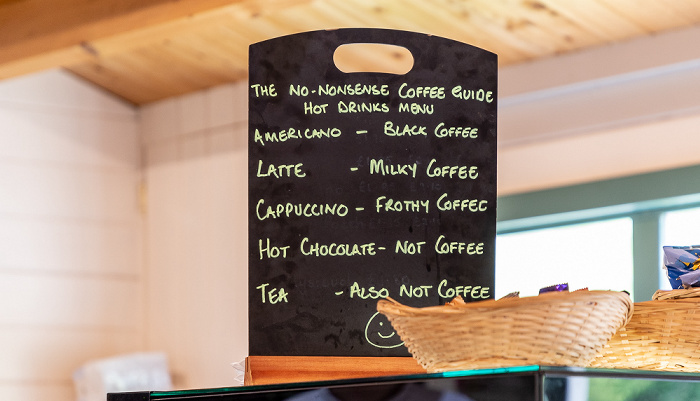 THE NO-NONSENSE COFFEE GUIDE
HOT DRINKS MENU
AMERICANO - BLACK COFFEE
LATTE - MILKY COFFEE
CAPPUCCINO - FROTHY COFFEE
HOT CHOCOLATE - NOT COFFEE
TEA - ALSO NOT COFFEE